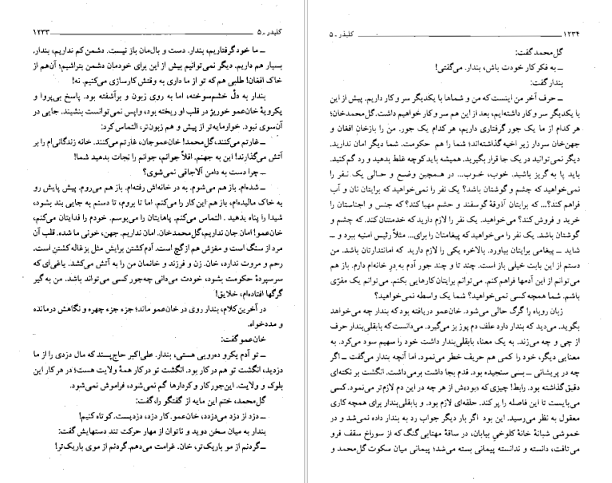 کلیدر ـ ۵ ۱۲۳۳
ـ ما خود گرفتاریم؛ بندار. دست و بالمان باز نیست. دشمن کم نداریم، بندار.
بسیار هم داریم. دیگر نمی‌توانیم بیش از این برای خودمان دشمن بتراشیم؛ آن‌هم از
خاک افغان! طلبی هم که تو از ما داری به وقتش کارسازی می‌کنیم. نه!
بندار به دل خشم‌سوخته، اما به روی زبون و برآشفته بود. پاسخ بی‌پروا و
یکرویهٔ خان‌عمو خوریز در قلب او ریخته بود، واپس نمی‌توانست بنشیند. جایی در
آن‌سوی نبود. خوارمایه‌تر از پیش و هم زبون‌تر، التماس کرد:
ـ غارتم می‌کنند، گل‌محمد! خان‌عموجان، غارتم می‌کنند. خانه زندگانی‌ام را بر
آتش می‌گذارند! این به جهنم. اقلاً جوانم، جوانم را نجات بدهید شما!
ـ چرا دست به دامن آلاجاقی نمی‌شوی؟
ـ شده‌ام. باز هم می‌شوم. به در خانه‌اش رفته‌ام، باز هم می‌روم. پیش پایش رو
به خاک مالیده‌ام، باز هم این کار را می‌کنم. اما تا بروم، تا دستم به جایی بند بشود،
شیدا را پناه بدهید. التماس می‌کنم. پاهایتان را می‌بوسم. خودم را فدایتان می‌کنم،
خان‌عمو! امان جان نداریم، گل‌محمدخان. امان نداریم. جهن، خونی ما شده. قلب آن
مرد از سنگ است و مغزش هم از گچ است. آدم کشتن برایش مثل بزغاله کشتن است.
رحم و مروت ندارد، خان. زن و فرزند و خانمان من را به آتش می‌کشد. یاغی‌ای که
سرسپردهٔ حکومت بشود، خودت می‌دانی چه‌جور کسی می‌تواند باشد. من به گیر
گرگها افتاده‌ام، خلایق!
در آخرین کلام، بندار روی در خان‌عمو ماند؛ جزء جزء چهره و نگاهش درمانده
و مددخواه.
خان‌عمو گفت:
ـ تو آدم یکرو و ده‌رویی هستی، بندار. علی‌اکبر حاج‌پسند که مال دزدی را از ما
دزدید، انگشت تو هم در کار بود. انگشت تو در کار همهٔ ولایت هست؛ در هر کار این
بلوک و ولایت. این‌جور کار و کردارها گم نمی‌شود، فراموش نمی‌شود.
گل‌محمد، ختم این مایه از گفتگو را، گفت:
ـ دزد از دزد می‌دزدد، خان‌عمو. کار دزد، دزدیست. کوتاه کنیم!
بندار به میان سخن دوید و ناتوان از مهار حرکت تند دستهایش گفت:
ـ گردنم از مو باریک‌تر، خان. غرامت می‌دهم. گردنم از موی باریک‌تر!
۱۲۳۴ کلیدر ـ ۵
گل‌محمد گفت:
ـ به فکر کار خودت باش، بندار. می‌گفتی!
بندار گفت:
ـ حرف آخر من اینست که من و شماها با یکدیگر سر و کار داریم. پیش از این
هم با یکدیگر سر و کار داشته‌ایم، بعد از این هم سر و کار خواهیم داشت، گل‌محمدخان؛
هر کدام از ما یک جور گرفتاری داریم، هر کدام یک جور. من را بازخان افغان و
جهن‌خان سردار زیر اخیه گذاشته‌اند؛ شما را هم حکومت. شما دیگر امان ندارید.
دیگر نمی‌توانید در یک جا قرار بگیرید. همیشه باید کوچه غلط بدهید و رد گم کنید.
باید پا به گریز باشید. خوب، خوب... در همچین وضع و حالی یک نفر را
نمی‌خواهید که چشم و گوشتان باشد؟ یک نفر را نمی‌خواهید که برایتان نان و آب
فراهم کند؟... که برایتان آذوقهٔ گوسفند و حشم مهیا کند؟ که جنس و اجناستان را
خرید و فروش کند؟ می‌خواهید. یک نفر را لازم دارید که خدمتتان کند، که چشم و
گوشتان باشد. یک نفر را می‌خواهید که پیغامتان را برای... مثلاً رئیس امنیه ببرد و ـ
ـ پیغامی برایتان بیاورد. بالاخره یکی را لازم دارید که امانتدارتان باشد. من
دستم از این بابت خیلی باز است. چند تا و چند جور آدم به در خانه‌ام دارم. باز هم
می‌توانم از این آدمها فراهم کنم. می‌توانم برایتان کارهایی بکنم. می‌توانم یک مفرّی
باشم. شما همچه کسی نمی‌خواهید؟ شما یک واسطه نمی‌خواهید؟
زبان روباه را گرگ حالی می‌شود. خان‌عمو دریافته بود که بندار چه می‌خواهد
بگوید. می‌دید که بندار دارد علف دم پوز بز می‌گیرد. می‌دانست که باباقلی‌بندار حرف
از چی و چه می‌زند. به یک معنا، بندار باباقلی‌بندار داشت خود را سهیم سود می‌کرد. به
معنایی دیگر، خود را کمی هم حریف خطر می‌نمود. اما آنچه بندار می‌گفت ـ اگر
چه در پریشانی ـ بسی سنجیده بود. قدم بجا داشت برمی‌داشت. انگشت بر نکته‌ای
دقیق گذاشته بود. رابط! چیزی که بودش از هر چه در این دم لازم‌تر می‌نمود. کسی
می‌بایست تا این فاصله را پر کند. حلقه‌ای لازم بود. و باباقلی‌بندار برای همچه کاری
معقول به نظر می‌رسید. این بود اگر بار دیگر جواب رد به بندار داده نمی‌شد و در
خموشی شبانهٔ خانهٔ کلوخی بیابان، در ساقهٔ مهتابی گنگ که از سوراخ سقف فرو
می‌تافت، دانسته و ندانسته پیمانی بسته می‌شد؛ پیمانی میان سکوت گل‌محمد و